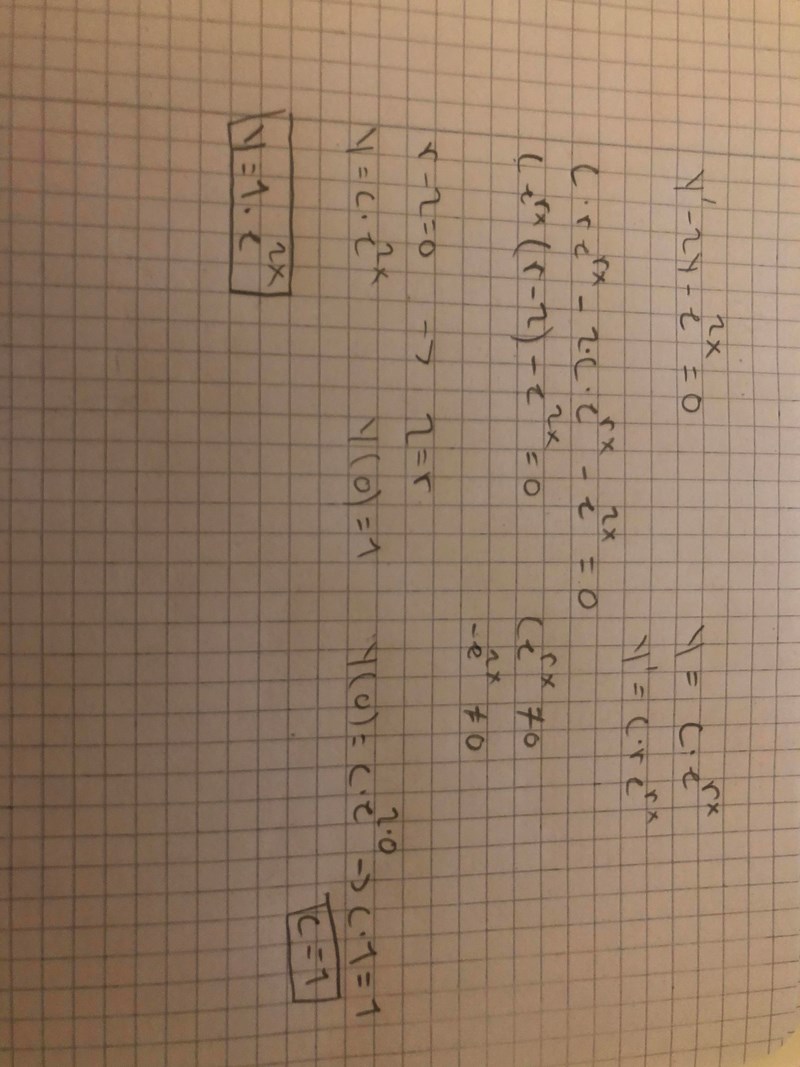 y' - 2y - e^{2x} = 0    y = C · e^{rx}
y' = C · r e^{rx}
C · r e^{rx} - 2 · C · e^{rx} - e^{2x} = 0
C e^{rx} (r - 2) - e^{2x} = 0    C e^{rx} ≠ 0
-e^{2x} ≠ 0
r - 2 = 0 -> 2 = r
y = C · e^{2x}    y(0) = 1    y(0) = C · e^{2·0} -> C · 1 = 1
C = 1
y = 1 · e^{2x}